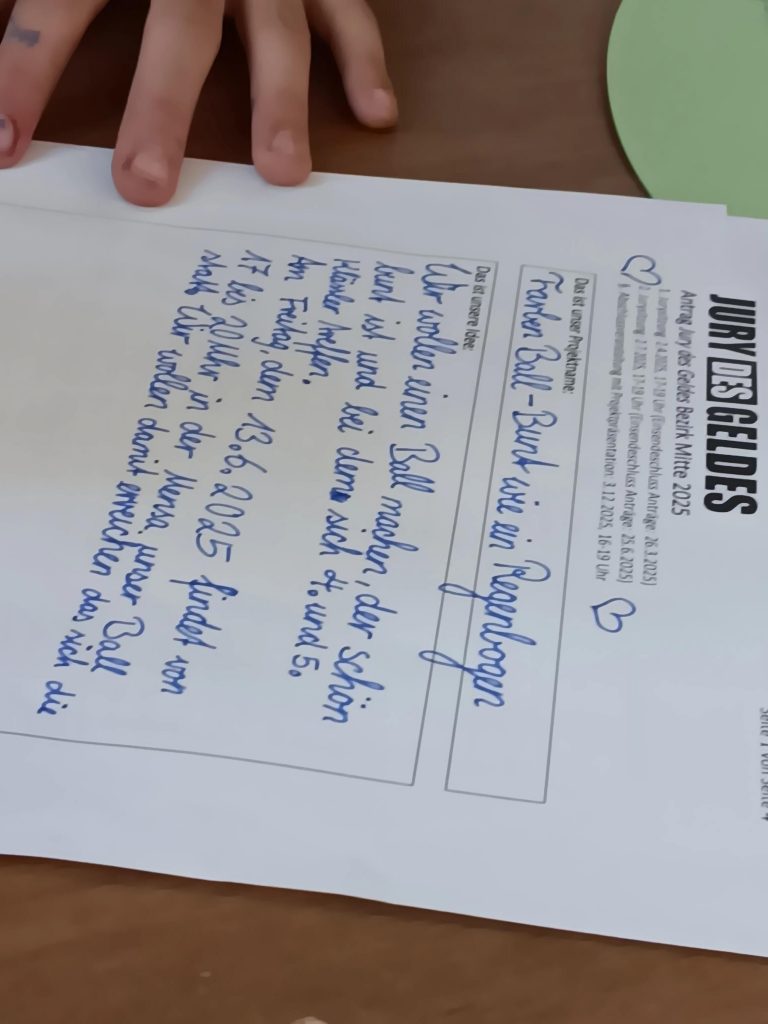 Seite 1 von Seite 4
JURY DES GELDES
Antrag Jury des Geldes Bezirk Mitte 2025
1. Jurysitzung: 2.4.2025, 17-19 Uhr (Einsendeschluss Anträge: 26.3.2025)
2. Jurysitzung: 2.7.2025, 17-19 Uhr (Einsendeschluss Anträge: 25.6.2025)
Abschlussveranstaltung mit Projektpräsentation: 3.12.2025, 16-19 Uhr
Das ist unser Projektname:
Farben Ball - Bunt wie ein Regenbogen
Das ist unsere Idee:
Wir wollen einen Ball machen, der schön
bunt ist und bei dem sich 4. und 5.
Klässler treffen.
Am Freitag, den 13.6.2025 findet von
17 bis 20 Uhr in der Mensa unser Ball
statt. Wir wollen damit erreichen das sich die